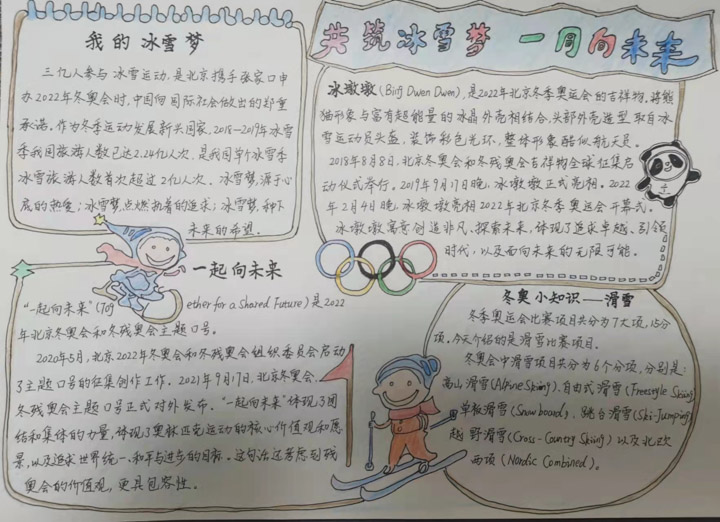 共筑冰雪梦 一同向未来
我的 冰雪梦
三亿人参与冰雪运动,是北京携手张家口申
办2022年冬奥会时,中国向国际社会做出的郑重
承满。作为冬季运动发展新兴国家,2018-2019年冰雪
季我国旅游人数已达2.24亿人次,是我国单个冰雪季
冰雪旅游人数首次超过2亿人次。冰雪梦,源于心
底的热爱;冰雪梦,点燃执着的追求;冰雪梦,种下
未来的希望。
冰墩墩(Bing Dwen Dwen),是2022年北京冬季奥运会的吉祥物,将熊
猫形象与富有超能量的冰晶外壳相结合,头部外壳造型取自冰
雪运动员头盔,装饰彩色光环,整体形象酷似航天员。
2018年8月8日,北京冬奥会和冬残奥会吉祥物全球征集启
动仪式举行。2019年9月17日晚,冰墩墩正式亮相。2022
年2月4日晚,冰墩墩亮相2022年北京冬季奥运会开幕式。
冰墩墩寓意创造非凡、探索未来,体现了追求卓越、引领
时代,以及面向未来的无限可能。
一起向未来
“一起向未来”(Together for a Shared Future)是2022
年北京冬奥会和冬残奥会主题口号。
2020年5月,北京2022年冬奥会和冬残奥会组织委员会启动
了主题口号的征集创作工作。2021年9月17日,北京冬奥会、
冬残奥会主题口号正式对外发布。“一起向未来”体现了团
结和集体的力量,体现了奥林匹克运动的核心价值观和愿
景,以及追求世界统一、和平与进步的目标。这句话还考虑到残
奥会的价值观,更具包容性。
冬奥小知识——滑雪
冬季奥运会比赛项目共分为7大项,15分
项。今天介绍的是滑雪比赛项目。
冬奥会中滑雪项目共分为6个分项,分别是:
高山滑雪(Alpine Skiing)、自由式滑雪(Freestyle Skiing)
单板滑雪(Snowboard)、跳台滑雪(Ski-Jumping)
越野滑雪(Cross-Country Skiing)以及北欧
两项(Nordic Combined)。